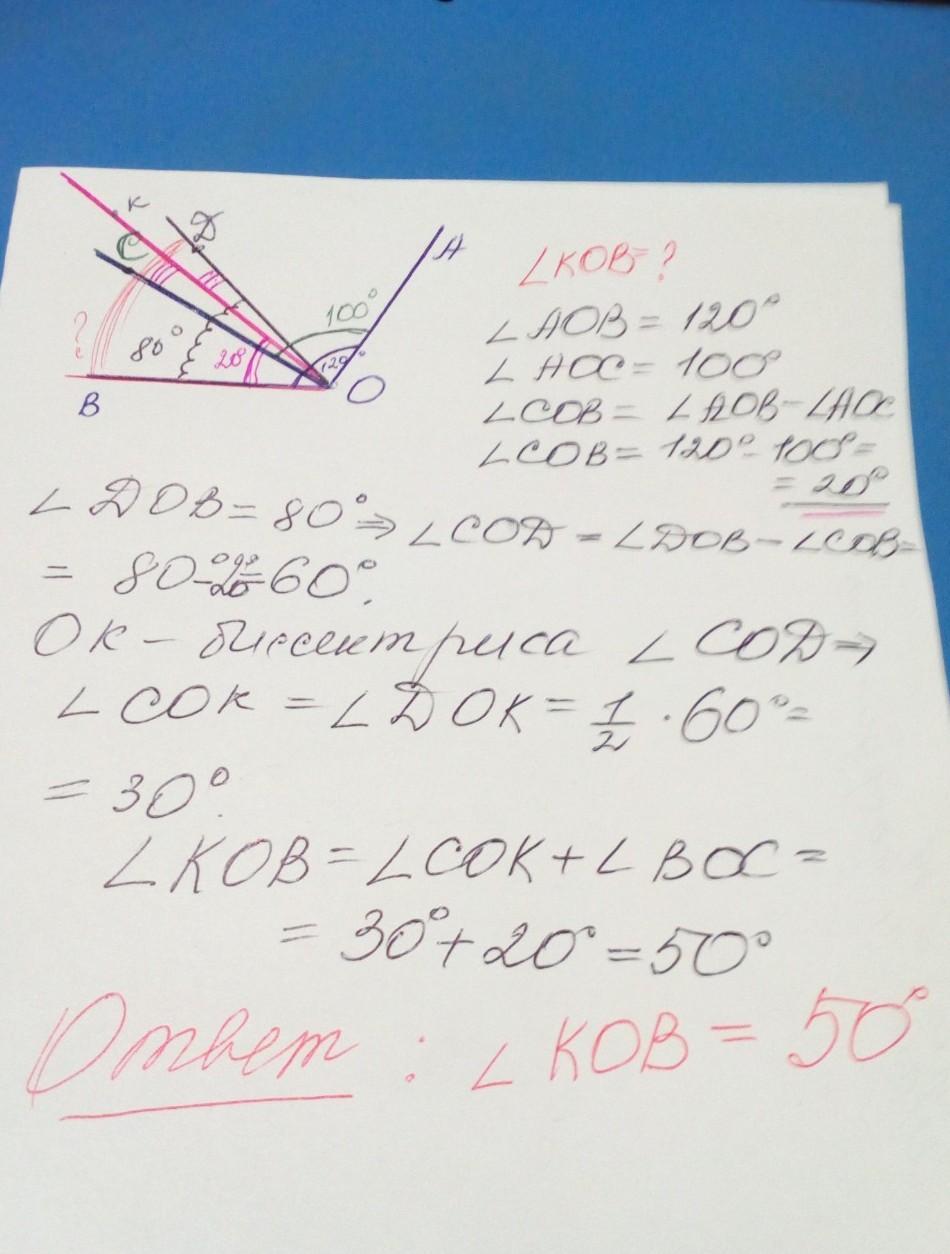 K
C
D
A
100°
120°
?
80°
20°
B
O
∠KOB=?
∠AOB = 120°
∠AOC = 100°
∠COB = ∠AOB - ∠AOC
∠COB = 120° - 100° =
= 20°
∠DOB = 80° ⇒ ∠COD = ∠DOB - ∠COB =
= 80° - 20° = 60°.
OK - биссектриса ∠COD ⇒
∠COK = ∠DOK = 1/2 · 60° =
= 30°.
∠KOB = ∠COK + ∠BOC =
= 30° + 20° = 50°
Ответ : ∠KOB = 50°